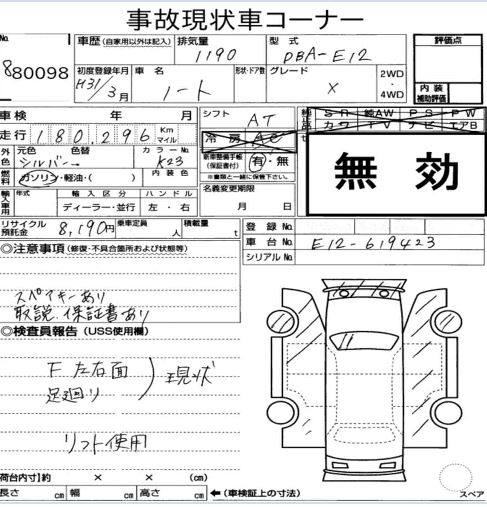 事故現状車コーナー
No. 880098
車歴 (自家用以外は記入) 排気量 1190 型式 DBA-E12
評価点
初度登録年月 H31/3月 車名 ノート 形状・ドア数 グレード X 2WD・4WD
内装補助評価
車検 年 月 シフト AT
走行 180,296 Km マイル 冷房 AC
純正品 SR 純AW PS PW
カワ TV ナビ エアB
外色 元色 シルバー→ 色替 カラーNo. K23
新車整備手帳(保証書付) 有・無
※書類と一緒に保管下さい。
無効
燃料 ガソリン・軽油・( ) 内装色
名義変更期限 月 日
輸入車用 年式 輸入区分 ディーラー・並行 ハンドル 左・右
リサイクル預託金 8,190円 乗車定員 人 積載量 t
登録No.
車台No. E12-619423
シリアルNo.
◎注意事項 (修復・不具合箇所および状態等)
スペアキーあり
取説、保証書あり
◎検査員報告 (USS使用欄)
F 左右面
足廻り ) 現状
リフト使用
荷台内寸 前行 × × (cm)
長さ cm 幅 cm 高さ cm ←(車検証上の寸法)
スペア